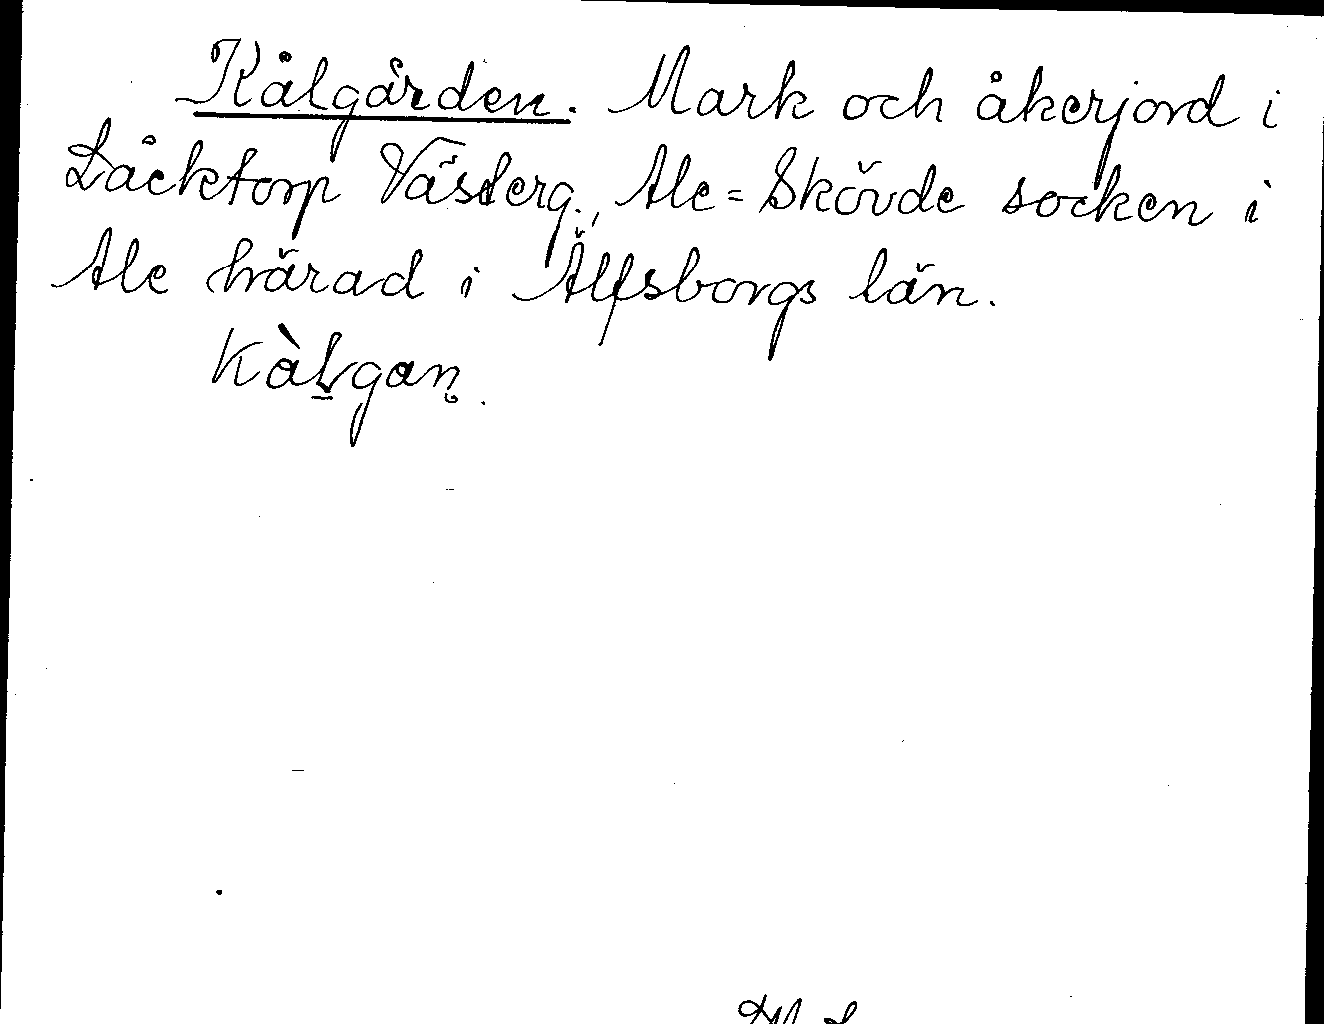 Kålgården. Mark och åkerjord i
Låcktorp Västerg., Ale=Skövde socken i
Ale härad i Älfsborgs län.
Kàḻgan̥.